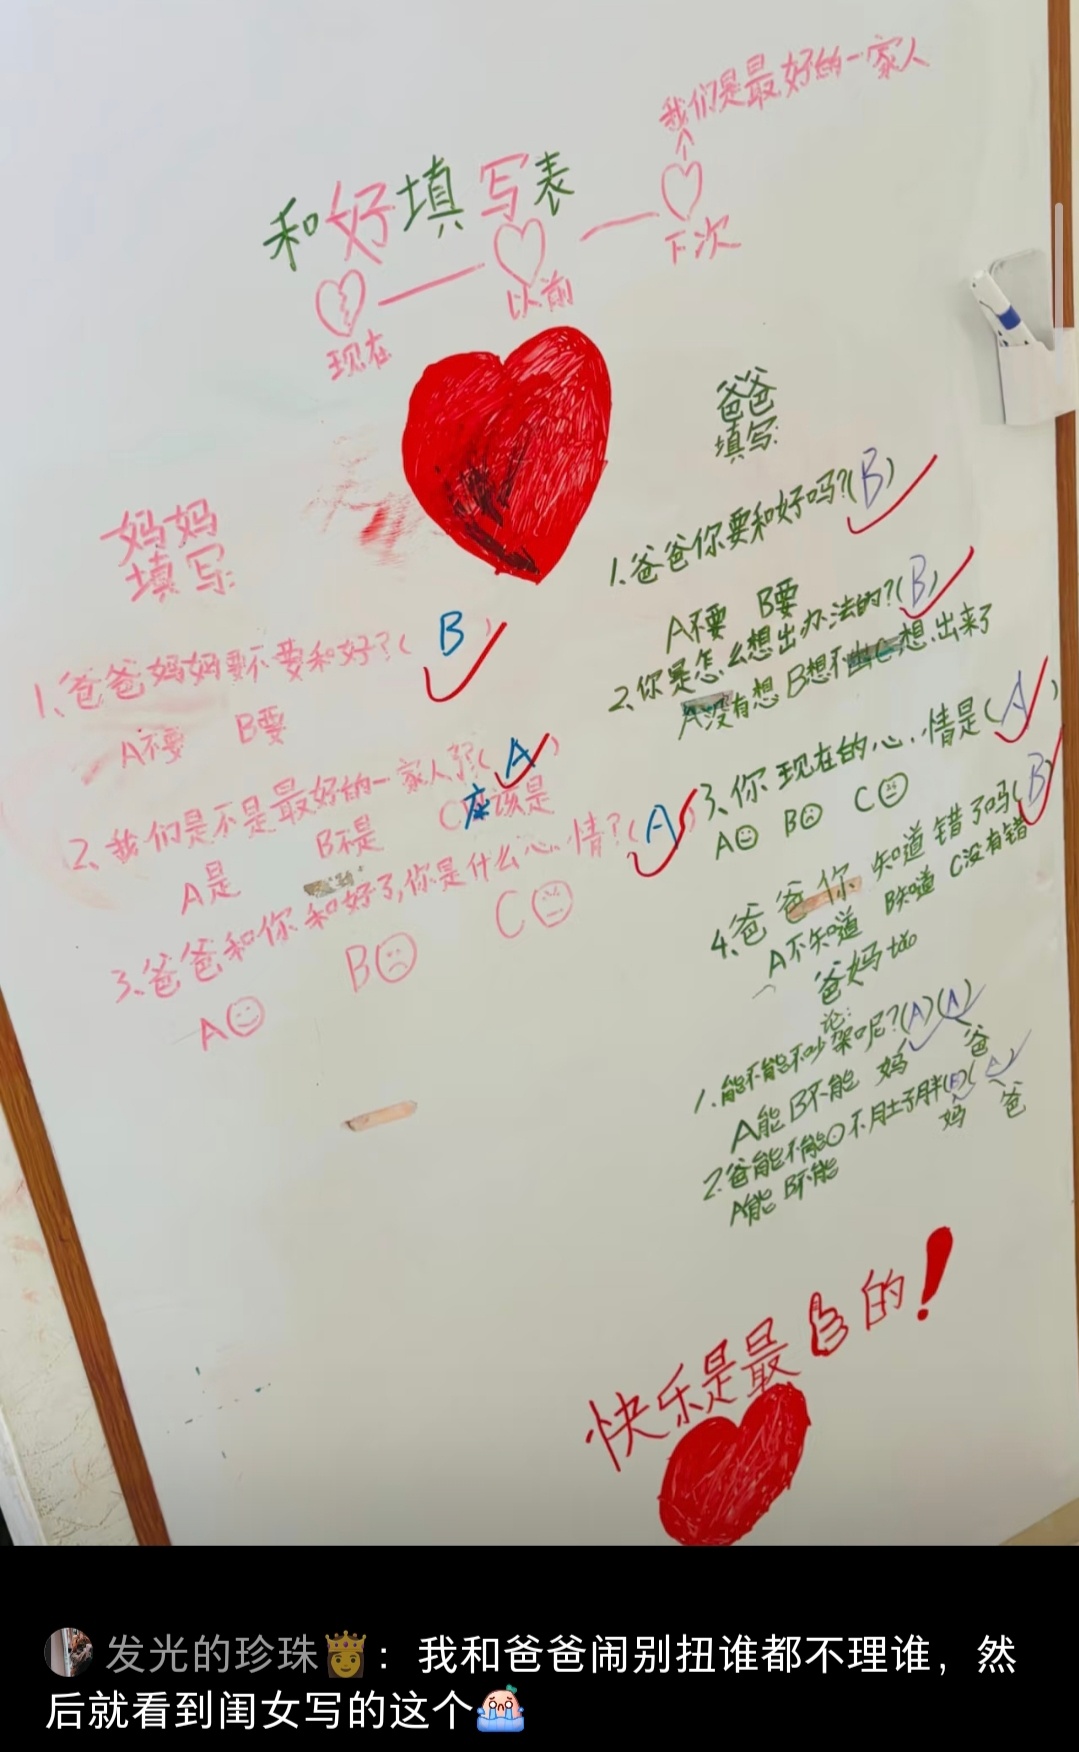 我们是最好的一家人
和好填写表
下次
以前
现在
妈妈
填写:
1、爸爸妈妈要不要和好?(B)
A不要 B要
2、我们是不是最好的一家人呢(A)
A是 B不是 C应该是
3、爸爸和你和好了,你是什么心情?(A)
A B C
爸爸
填写:
1.爸爸你要和好吗?(B)
A不要 B要
2.你是怎么想出办法的?(B)
A没有想 B想不出 C想出来了
3、你现在的心情是(A)
A B C
4、爸爸你知道错了吗(B)
A不知道 B知道 C没有错
爸妈tao
论:
1.能不能不吵架呢?(A)(A)
妈 爸
A能 B不能
2.爸能不能不月土子胖(B)(A)
妈 爸
A能 B不能
快乐是最的!
发光的珍珠👸:我和爸爸闹别扭谁都不理谁,然
后就看到闺女写的这个